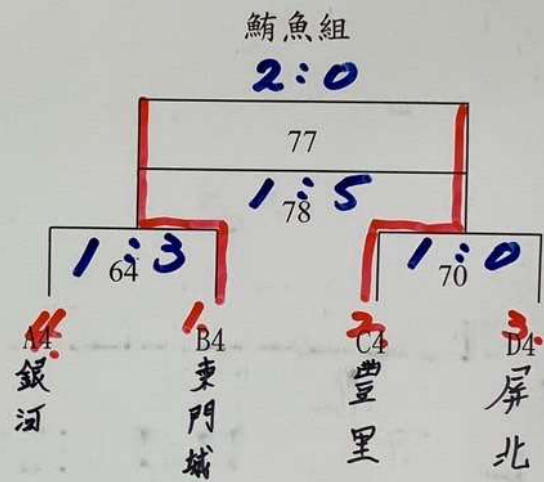 鮪魚組
2:0
77
1:5
78
1:3
64
1:0
70
4.
A4
銀河
1.
B4
東門城
2.
C4
豐里
3.
D4
屏北